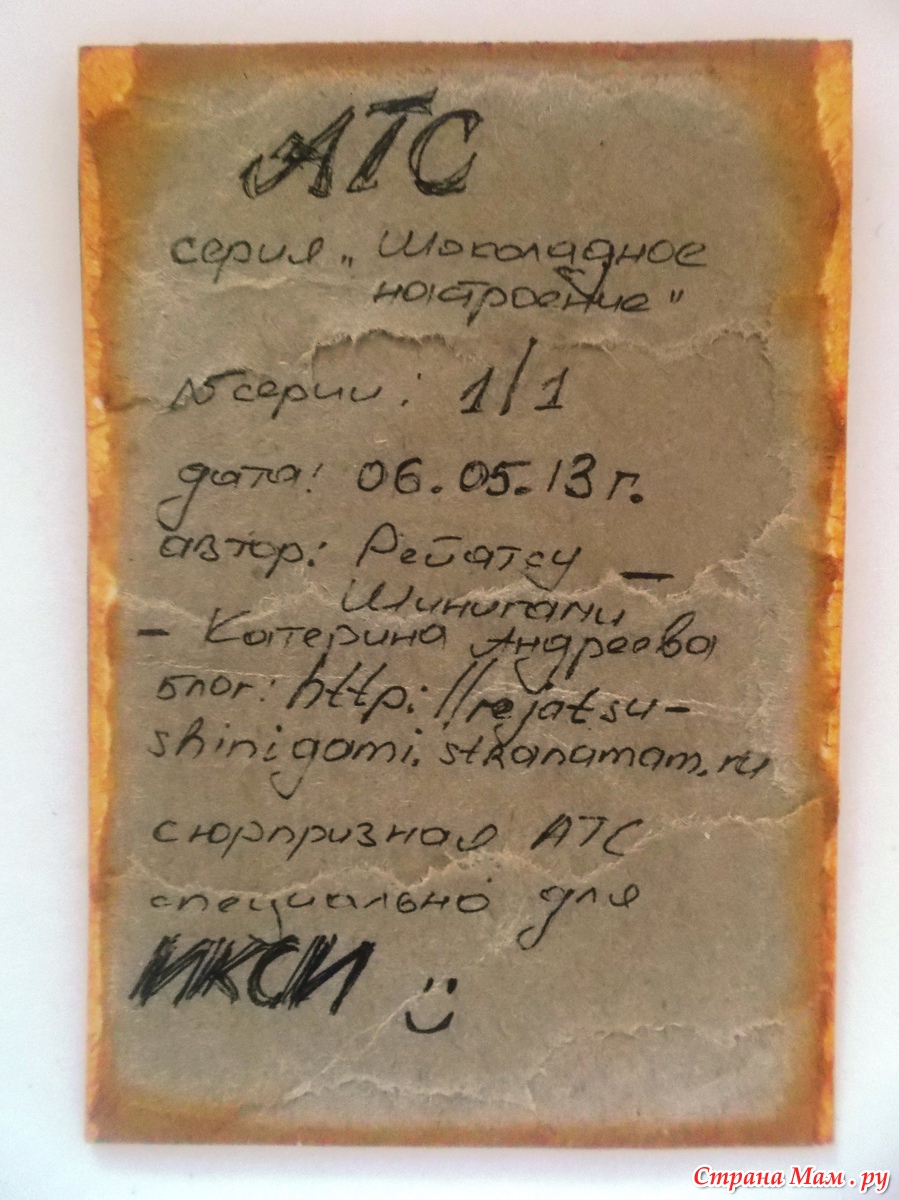 АТС
серия „Шоколадное
настроение"
№ серии: 1/1
дата: 06.05.13 г.
автор: Рейатсу _
Шинигами
- Катерина Андреева
блог: http://rejatsu-
shinigami.stranamam.ru
сюрпризная АТС
специально для
ИКСИ
Страна Мам.ру